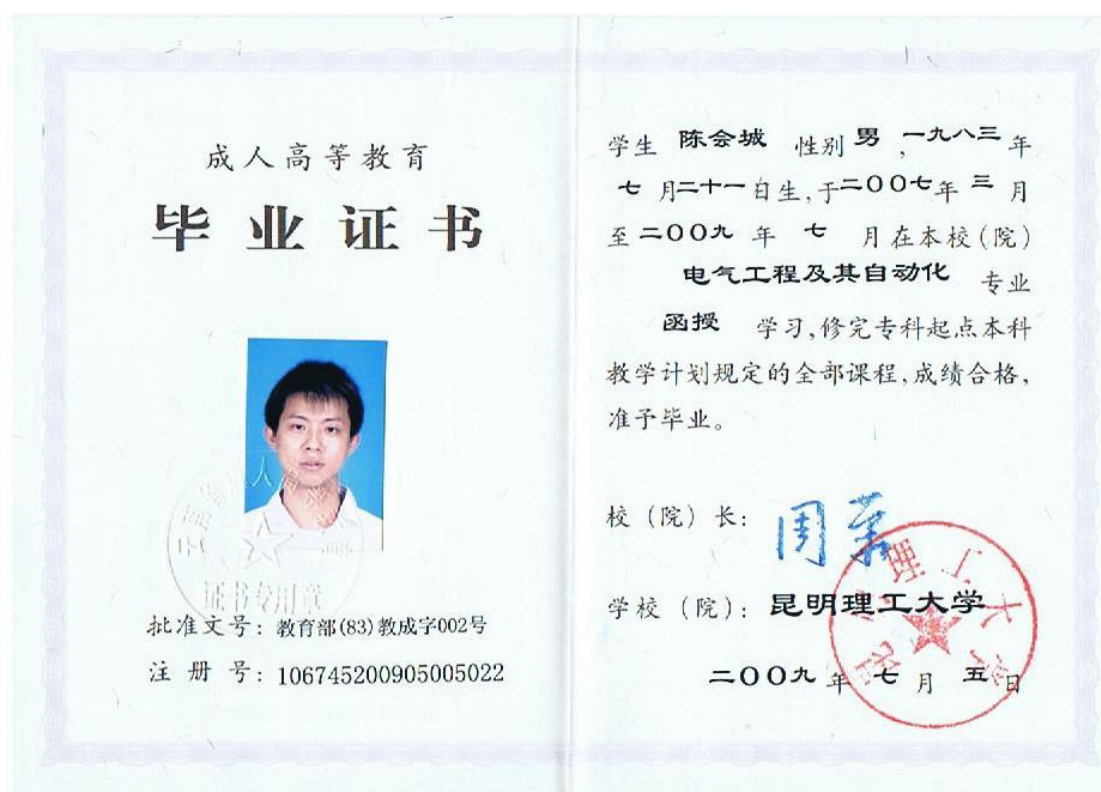 成人高等教育
毕业证书
证书专用章
批准文号：教育部(83)教成字002号
注册号：106745200905005022
学生 陈会城 性别 男，一九八三年
七月二十一日生，于二〇〇七年三月
至二〇〇九年七月在本校(院)
电气工程及其自动化 专业
函授 学习，修完专科起点本科
教学计划规定的全部课程，成绩合格，
准予毕业。
校（院）长：周荣
学校（院）：昆明理工大学
二〇〇九年七月五日
昆明理工大学